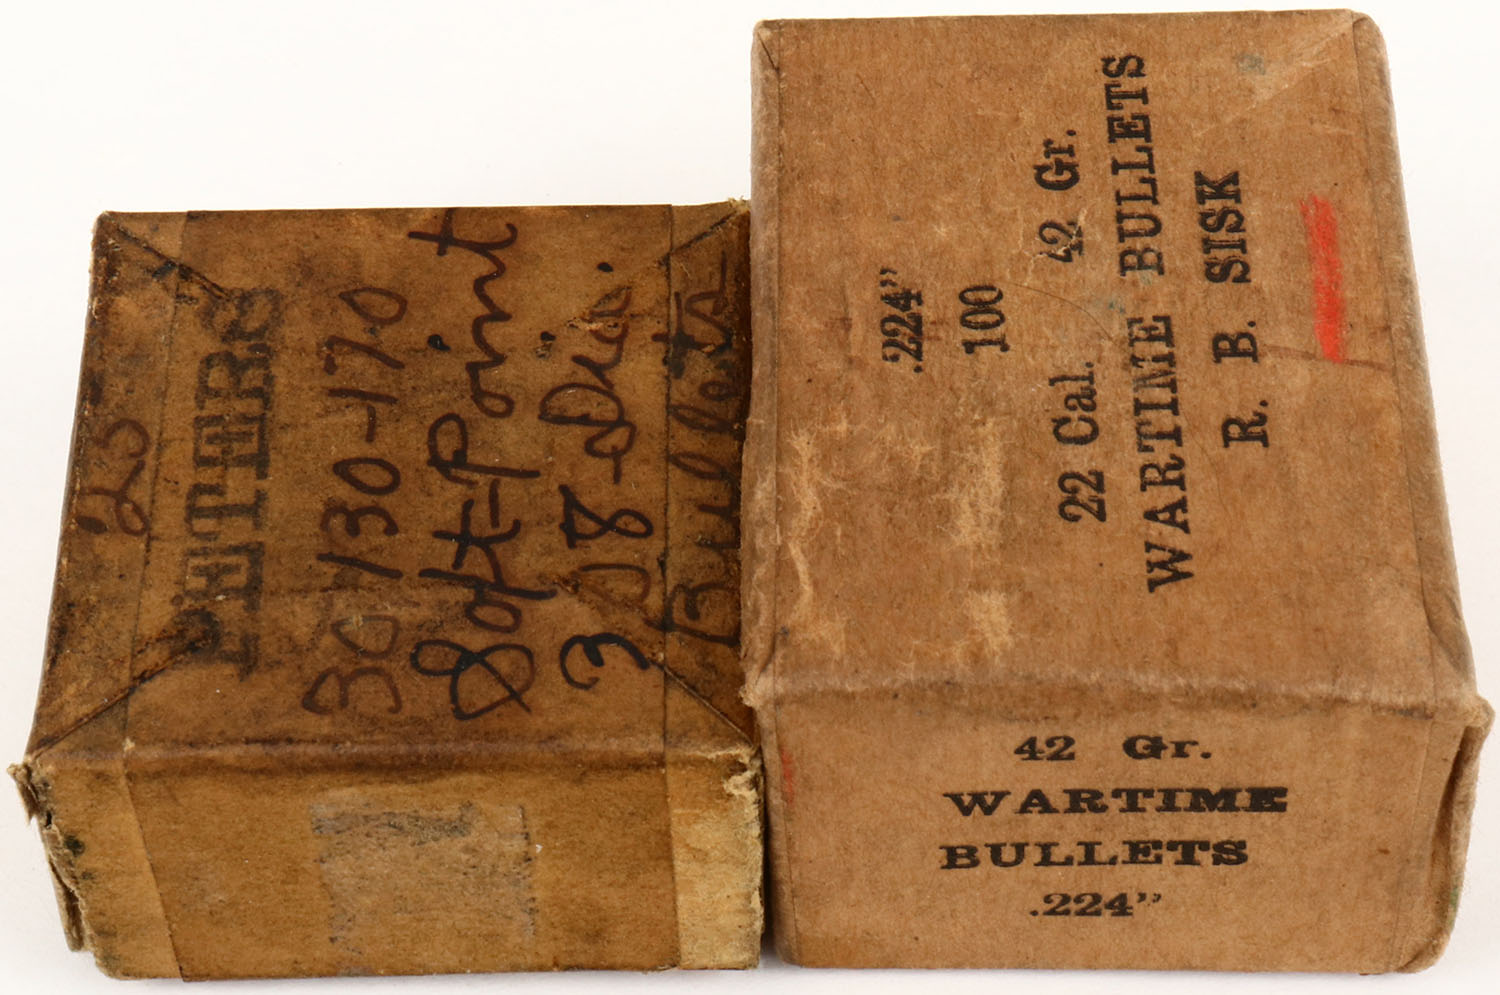 25
PETERS
30/30-170
Soft-Point
308-Dia.
Bullets
.224"
100
22 Cal. 42 Gr.
WARTIME BULLETS
R. B. SISK
42 Gr.
WARTIME
BULLETS
.224"